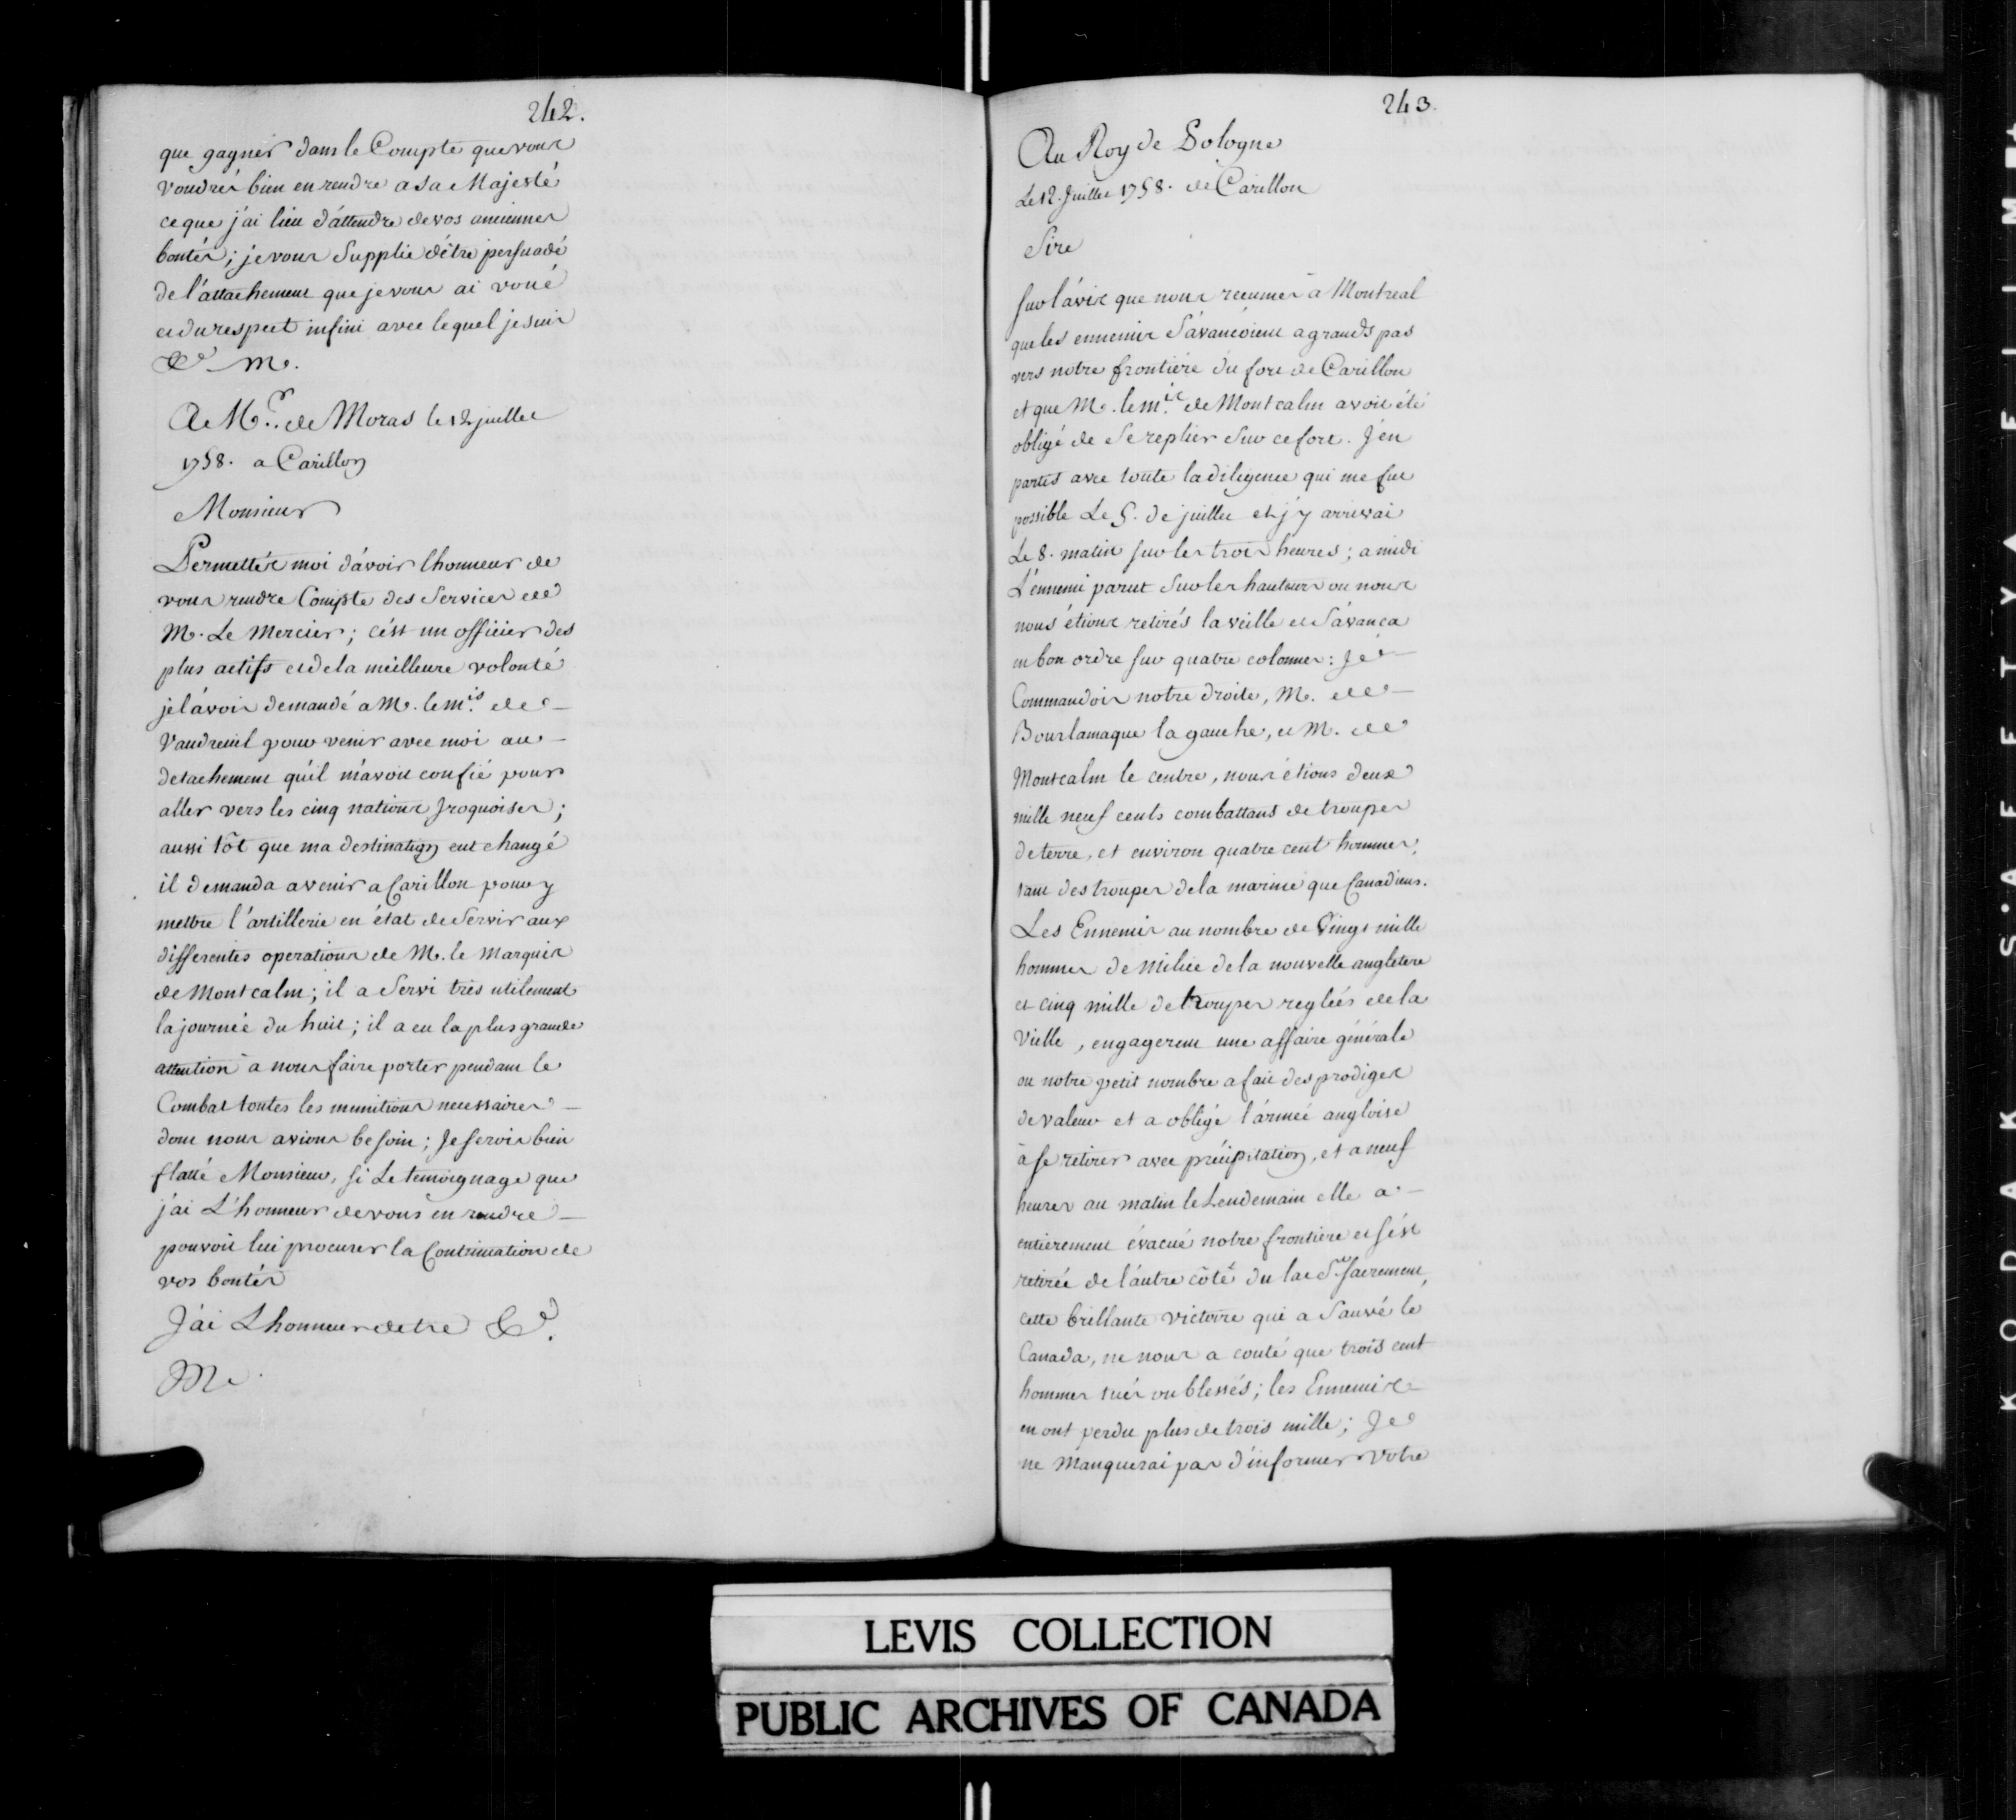 242.
que gagner dans le Compte que vous
voudrés bien en rendre a sa Majesté
ce que j'ai lieu d'áttendre de vos anciennes
bontés; je vous Supplie d'être persuadé
de l'attachement que je vous ai voué
et du respect infini avec lequel je suis
&c. M.
A Mr. de Moras le 12 juillet
1758. a Carillon
Monsieur
Permettés moi d'ávoir l'honneur de
vous rendre Compte des Services de
M. Le Mercier; c'ést un officier des
plus actifs et de la meilleure volonté
je l'ávois demandé a M. le mis. de
Vaudreuil pour venir avec moi au
detachement qu'il m'avoit confié pour
aller vers les cinq nations Iroquoises;
aussi tôt que ma destination eut changé
il demanda a venir a Carillon pour y
mettre l'artillerie en état de Servir aux
differentes operations de M. le Marquis
de Montcalm; il a Servi très utilement
la journée du huit; il a eu la plus grande
attention à nous faire porter pendant le
Combat toutes les munitions necessaires
dont nous avions besoin; Je serois bien
flatté Monsieur, si Le temoignage que
j'ai L'honneur de vous en rendre
pouvoit lui procurer la Continuation de
vos bontés
J'ai L'honneur detre &c.
M.
243.
Au Roy de Pologne
Le 12. Juillet 1758. de Carillon
Sire
Sur l'ávis que nous reçumes à Montreal
que les ennemis S'ávancoient a grands pas
vers notre frontiére du fort de Carillon
et que M. le mis. de Montcalm avoit été
obligé de Se replier Sur ce fort. J'en
partis avec toute la diligence qui me fut
possible Le 5. de juillet et j'y arrivai
Le 8. matin sur les trois heures; a midi
L'énnemi parut Sur les hauteurs ou nous
nous étions retirés la veille et S'ávança
en bon ordre sur quatre colonnes: Je
Commandois notre droite, M. de
Bourlamaque la gauche, et M. de
Montcalm le centre, nous étions deux
mille neuf cents combattans de troupes
de terre, et environ quatre cent hommes,
tant des troupes de la marine que Canadiens.
Les Ennemis au nombre de Vingt mille
hommes de milice de la nouvelle angletere
et cinq mille de troupes reglées de la
Vielle, engagerent une affaire générale
ou notre petit nombre a fait des prodiges
de valeur et a obligé l'ármée angloise
à se retirer avec précipitation, et a neuf
heures au matin le Lendemain elle a
entierement évacué notre frontiere et s'ést
retirée de l'áutre côté du lac St. sacrement,
cette brillante victoire qui a Sauvé le
Canada, ne nous a couté que trois cent
hommes tués ou blessés; les Ennemis
en ont perdu plus de trois mille; Je
ne Manquerai pas d'informer Votre
LEVIS COLLECTION
PUBLIC ARCHIVES OF CANADA
KODAK S'AFETY FILM